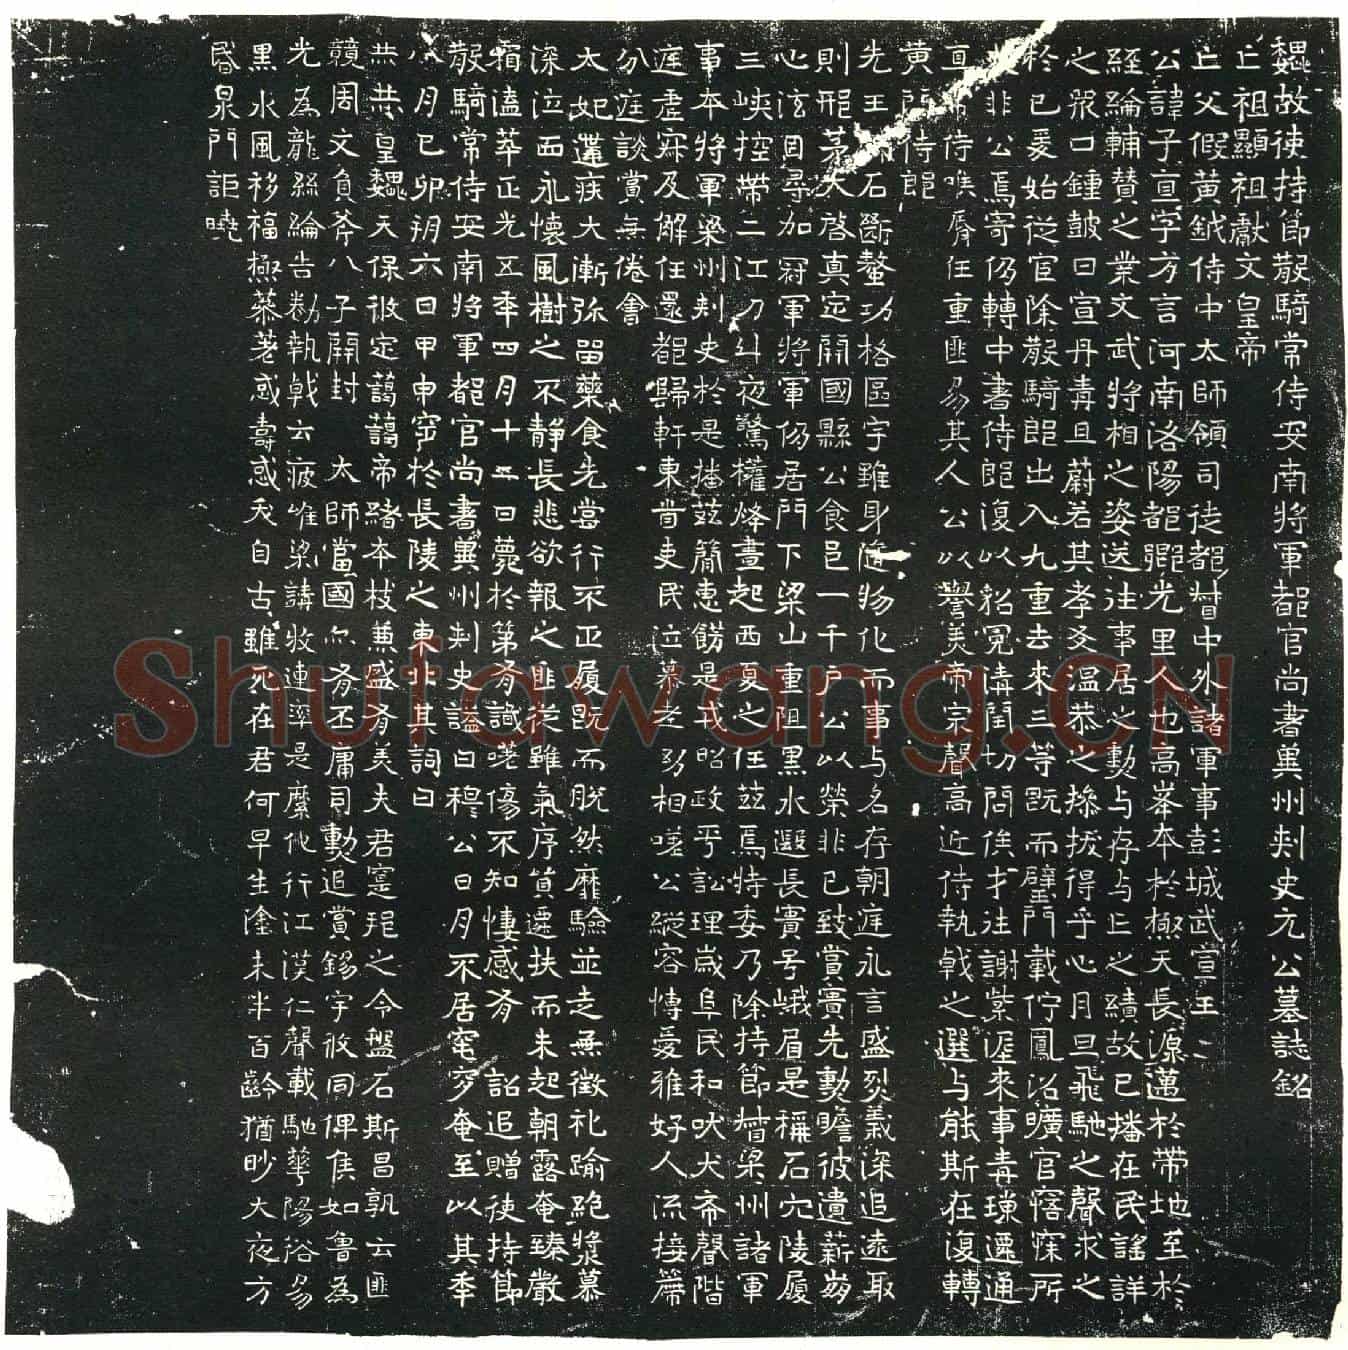 魏故使持節散騎常侍安南將軍都官尚書冀州刺史元公墓誌銘
亡祖顯祖獻文皇帝
亡父假黃鉞侍中太師領司徒都督中外諸軍事彭城武宣王
公諱子直字方言河南洛陽都鄉光里人也高峯本於極天長源邁於帶地至於
經綸輔贊之業文武將相之姿送往事居之勲与存与亡之績故已播在民謠詳
之衆口鍾鼓曰宣丹青且蔚若其孝友溫恭之操拔得乎心月旦飛馳之聲求之
於已爰始從官除散騎郎出入九重去來三等既而璧門載佇鳳沼曠官寤寐所
非公焉寄仍轉中書侍郎復以貂冕清閏切問俟才往謝紫渥來事青瑣遷通
直常侍喉脣任重匪易其人公以譽美帝宗聲高近侍執戟之選与能斯在復轉
黃門侍郎
先王 石斷鼇功格區宇雖身隨物化而事与名存朝庭永言盛烈義深追遠取
則邢茅大啓真定開國縣公食邑一千戶公以榮非已致賞實先勲瞻彼遺薪
心泫目尋加冠軍將軍仍居門下梁山重阻黑水遐長實号峨眉是稱石穴陵履
三峽控帶二江刀斗夜驚權烽晝起西夏之任茲焉特委乃除持節督梁州諸軍
事本將軍梁州刺史於是播茲簡惠餝是戎昭政平訟理歲阜民和吠犬希聲階
庭虛寂及解任還都歸軒東首吏民泣慕老幼相嗟公縱容愽愛雅好人流接席
分庭談賞無倦會
太妃遘疾大漸弥留藥食先嘗行不正履既而脫然靡驗並走無徵礼踰絕漿慕
深泣血永懷風樹之不靜長悲欲報之匪從雖氣序貿遷扶而未起朝露奄臻嚴
霜溘萃正光五年四月十二日薨於第有識嗟傷不知悽感有 詔追贈使持節
散騎常侍安南將軍都官尚書冀州刺史謚曰穆公日月不居窀穸奄至以其年
八月已卯朔六日甲申窆於長陵之東北其詞曰
共共皇魏天保攸定藹藹帝緒本枝兼盛有美夫君寔珪之令盤石斯昌孰云匪
競周文負斧八子開封 太師當國尒有丕庸司勲追賞錫宇攸同俾侯如魯為
光為龍絲綸告勸執戟云疲唯梁請牧連率是縻化行江漢仁聲載馳華陽俗易
黑水風移福極菾茖或壽或夭自古雖死在君何早生塗未半百齡猶眇大夜方
昏泉門詎曉
Shufawang.CN